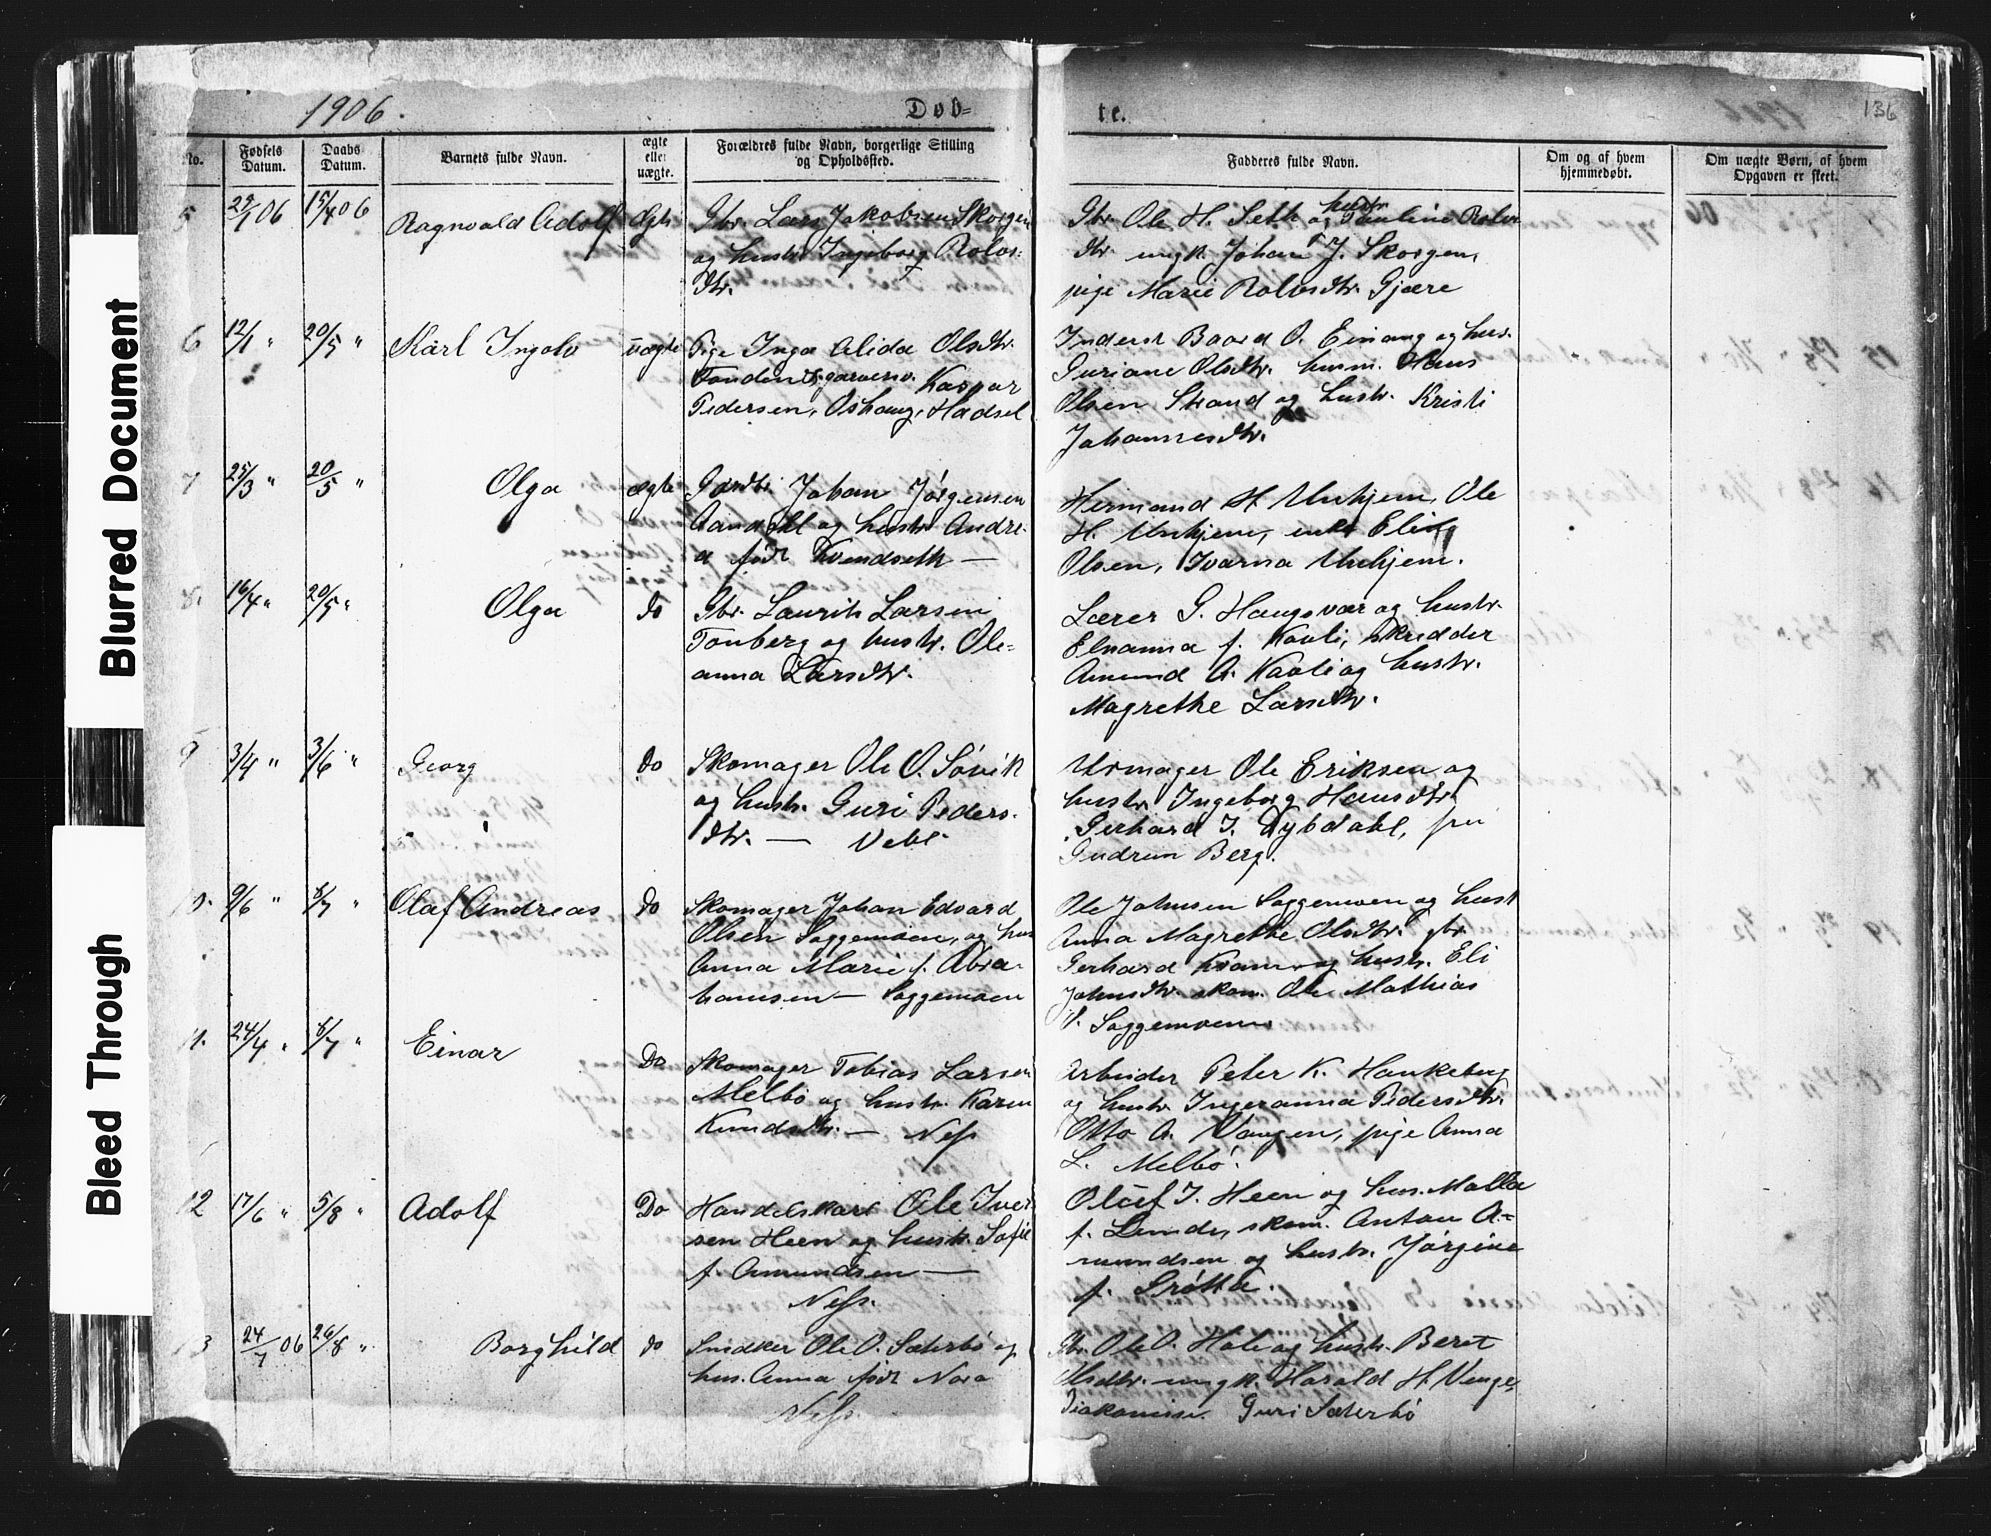 1906.
Døb=
te.
136
No.
Fødsels Datum.
Daabs Datum.
Barnets fulde Navn.
ægte eller uægte.
Forældres fulde Navn, borgerlige Stilling og Opholdssted.
Fadderes fulde Navn.
Om og af hvem hjemmedøbt.
Om uægte Børn, af hvem Opgaven er skeet.
5 29/1 06 15/4 06 Ragnvald Adolf Ægte
Gbr. Lars Jakobsen Skorgen
og hustr. Ingeborg Rolvs=
dtr.
Gbr. Ole H. Seth og hustr. Pauline Rolvs
dtr. ungk. Johan J. Skorgen,
pige Marie Rolvsdtr. Gjære
6 12/1 " 20/5 " Karl Ingolv uægte
Pige Inga Alida Olsdtr.
Kaspar
Pedersen, Oshaug, Hadsel
Inderst Baard O. Einang og hus.
Guriane Olsdtr. husm. Hans
Olsen Strand og hustr. Kristi
Johannesdtr.
7 25/3 " 20/5 " Olga ægte
Gardbr. Johan Jørgensen
Aandahl og hustr. Andre=
a født Svendseth —
Hermand H. Unhjem, Ole
H. Unhjem, enke Eli
Olsen, Ivarna Unhjem.
8. 16/4 " 20/5 " Olga do
Gbr. Laurits Larsen
Tonberg og hustr. Ole=
anna Larsdtr.
Lærer G. Haugsvær og hustr.
Elnanna f. Kavli, skredder
Amund A. Kavli og hustr.
Magrethe Larsdtr.
9 3/4 " 3/6 " Georg do
Skomager Ole O. Søvik
og hustr. Guri Peders=
dtr. — Veblungsnes
Urmager Ole Eriksen og
hustr. Ingeborg Hansdtr.
Gerhard I. Dybdahl, fru
Gudrun Berg.
10. 9/6 " 8/7 " Olaf Andreas do
Skomager Johan Edvard
Olsen Soggemoen, og hus
Anna Marie f. Abra=
hamsen — Soggemoen
Ole Johnsen Soggemoen og hust
Anna Magrethe Olsdtr. gbr.
Gerhard Kvam og hustr. Eli
Johnsdtr. skom. Ole Mathias
O. Soggemoen
11. 24/4 " 8/7 " Einar Do
Skomager Tobias Larsen
Melbø og hustr. Karen
Knudsdtr. — Næss
Arbeider Peter K. Haukeberg
og hustr. Ingeranna Pedersdtr.
Otto A. Vangen, pige Anna
L. Melbø.
12 17/6 " 5/8 " Adolf Do
Handelskarl Ole Iver
sen Heen og hustr. Sofie
f. Amundsen —
Næss.
Oluf I. Heen og hus. Malla
f. Lunde, skom. Anton A=
mundsen og hustr. Jørgine
f. Grøtta.
13 24/7 06 26/8 " Borghild do
Snedker Ole O. Sæterbø og
hus. Anna født Nora
Næss.
Gbr. Ole O. Hole og hustr. Beret
Olsdtr. ungk. Harald H. Venge,
Diakonisse Guri Sæterbø
Blurred Document
Bleed Through